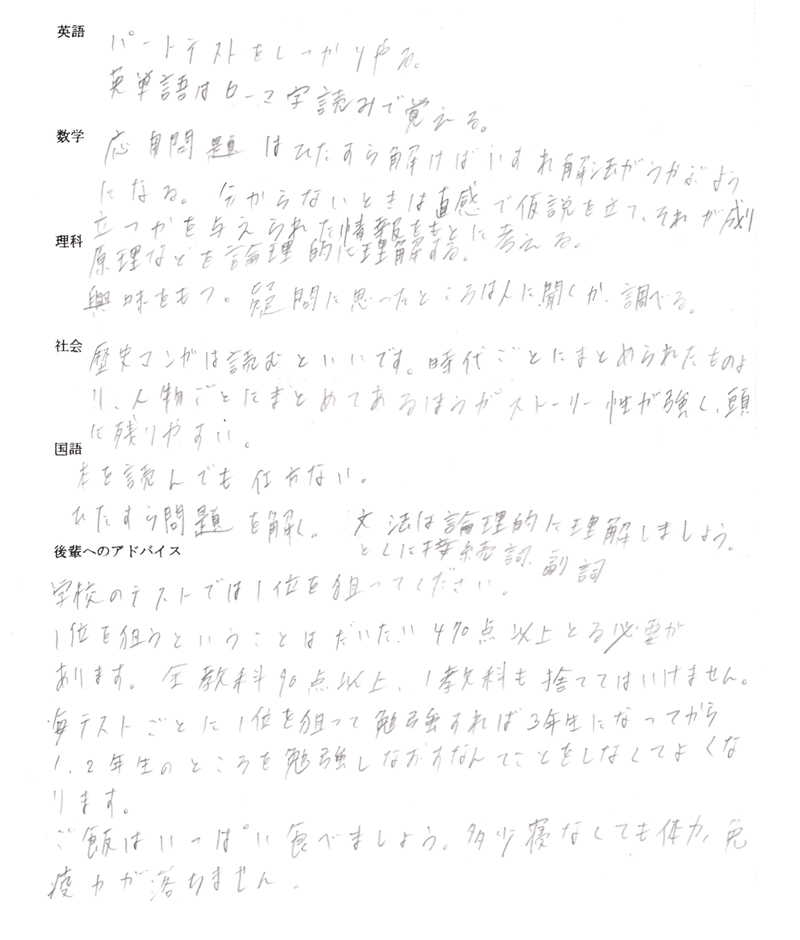 英語
パートテストをしっかりやる。
英単語はローマ字読みで覚える。
数学
応用問題はひたすら解けばいずれ解法がうかぶよう
になる。分からないときは直感で仮説を立て、それが成り
立つかを与えられた情報をもとに考える。
理科
原理などを論理的に理解する。
興味をもつ。疑問に思ったところは人に聞くか、調べる。
社会
歴史マンガは読むといいです。時代ごとにまとめられたものよ
り、人物ごとにまとめてあるほうがストーリー性が強く、頭
に残りやすい。
国語
を読んでも仕方ない。
ひたすら問題を解く。文法は論理的に理解しましょう。
とくに接続詞、副詞
後輩へのアドバイス
学校のテストでは1位を狙ってください。
1位を狙うということはだいたい470点以上とる必要が
あります。全教科90点以上、1教科も捨ててはいけません。
毎テストごとに1位を狙って勉強すれば3年生になってから
1、2年生のところを勉強しなおすなんてことをしなくてよくな
ります。
ご飯はいっぱい食べましょう。多少寝なくても体力、免
疫力が落ちません。